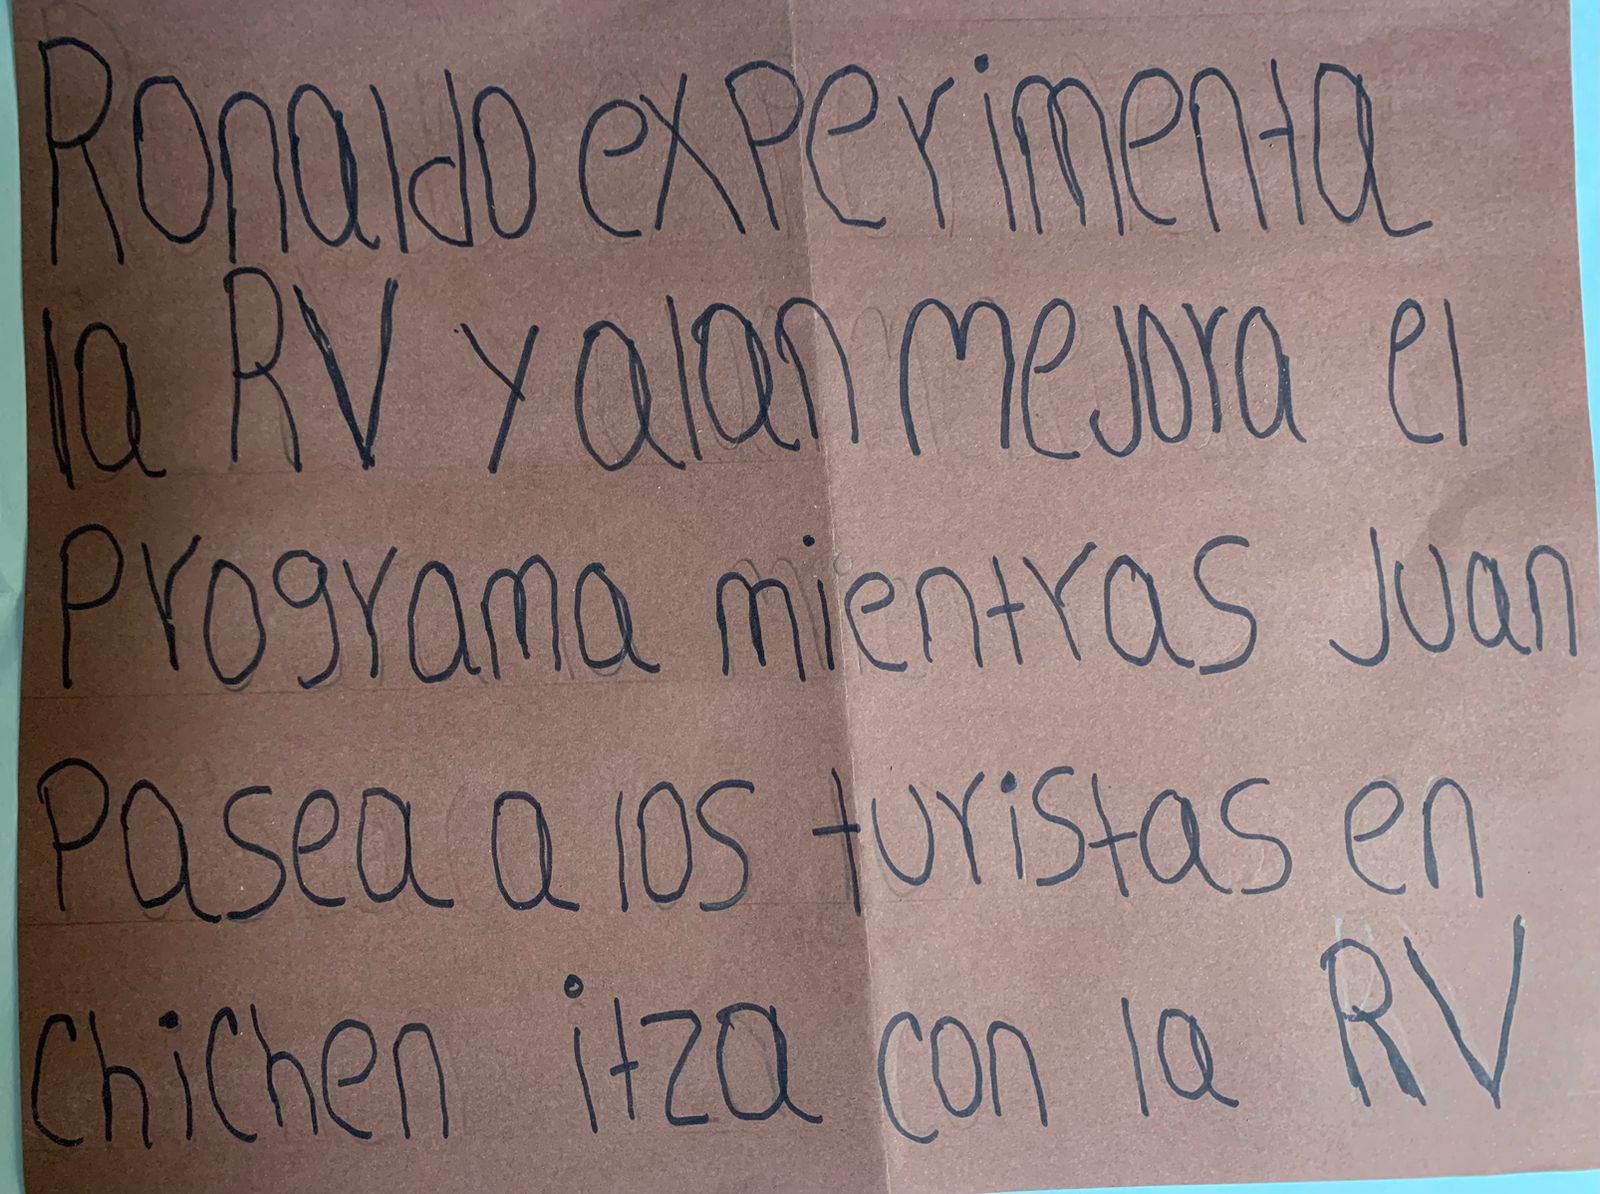 Ronaldo experimenta
la RV y alan mejora el
Programa mientras Juan
Pasea a los turistas en
chichen itza con la RV